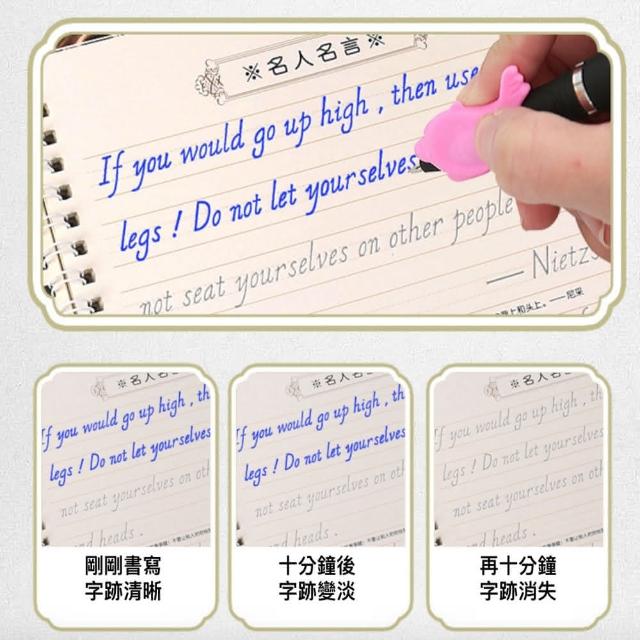 ※名人名言※
If you would go up high , then use
legs ! Do not let yourselves
not seat yourselves on other people
— Nietzs
上和头上。——尼采
※名人名
If you would go up high , th
legs ! Do not let yourselves
not seat yourselves on oth
d heads .
※名人名
If you would go up high , th
legs ! Do not let yourselves
not seat yourselves on oth
d heads .
※名人名
If you would go up high , th
legs ! Do not let yourselves
not seat yourselves on oth
d heads .
剛剛書寫
字跡清晰
十分鐘後
字跡變淡
再十分鐘
字跡消失